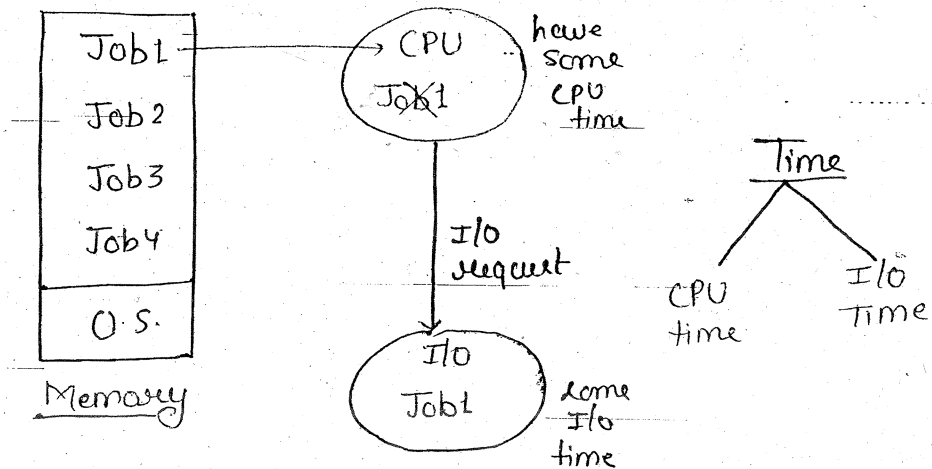 Job1
Job2
Job3
Job4
O.S.
Memory
CPU
Job1
have
some
CPU
time
I/O
request
I/O
Job1
some
I/O
time
Time
CPU
time
I/O
Time